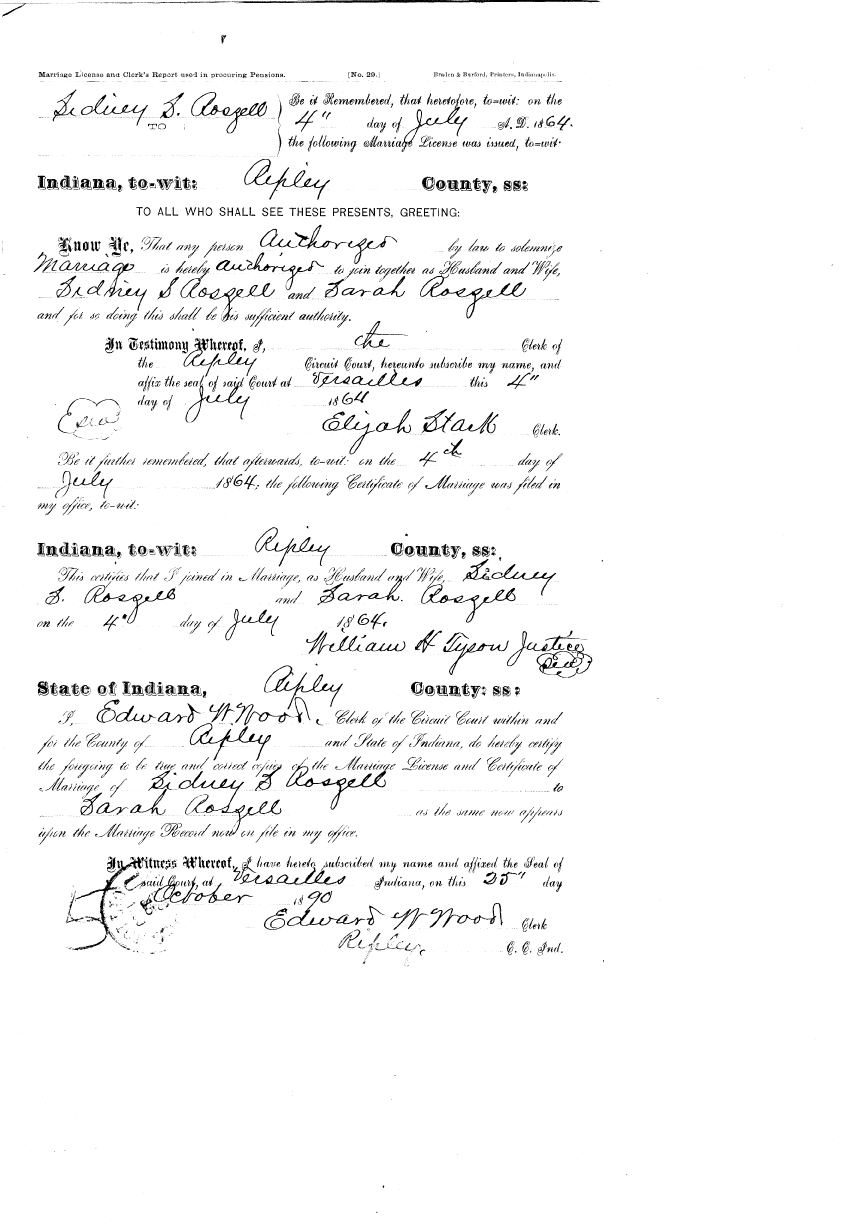 Marriage License and Clerk's Report used in procuring Pensions. [No. 29.] Braden & Burford, Printers, Indianapolis.
Sidney S. Roszell
TO
Be it Remembered, that heretofore, to-wit: on the
4" day of July A. D. 1864.
the following Marriage License was issued, to-wit:
Indiana, to-wit: Ripley County, ss:
TO ALL WHO SHALL SEE THESE PRESENTS, GREETING:
Know Ye, That any person Authorized by law to solemnize
Marriage is hereby authorized to join together as Husband and Wife,
Sidney S Roszell and Sarah Roszell
and for so doing this shall be his sufficient authority.
In Testimony Whereof, I, the Clerk of
the Ripley Circuit Court, hereunto subscribe my name, and
affix the seal of said Court at Versailles this 4"
day of July 1864
Elijah Stark Clerk.
Be it further remembered, that afterwards, to-wit: on the 4th day of
July 1864, the following Certificate of Marriage was filed in
my office, to-wit:
Indiana, to-wit: Ripley County, ss:
This certifies that I joined in Marriage, as Husband and Wife, Sidney
S. Roszell and Sarah. Roszell
on the 4" day of July 1864.
William H Tyson Justice
Seal
State of Indiana, Ripley County: ss:
I, Edward W. Wood, Clerk of the Circuit Court within and
for the County of Ripley and State of Indiana, do hereby certify
the foregoing to be true and correct copies of the Marriage License and Certificate of
Marriage of Sidney S Roszell to
Sarah Roszell as the same now appears
upon the Marriage Record now on file in my office.
In Witness Whereof, I have hereto subscribed my name and affixed the Seal of
said Court, at Versailles Indiana, on this 25" day
October 1890
Edward W Wood Clerk
Ripley, C. C. Ind.